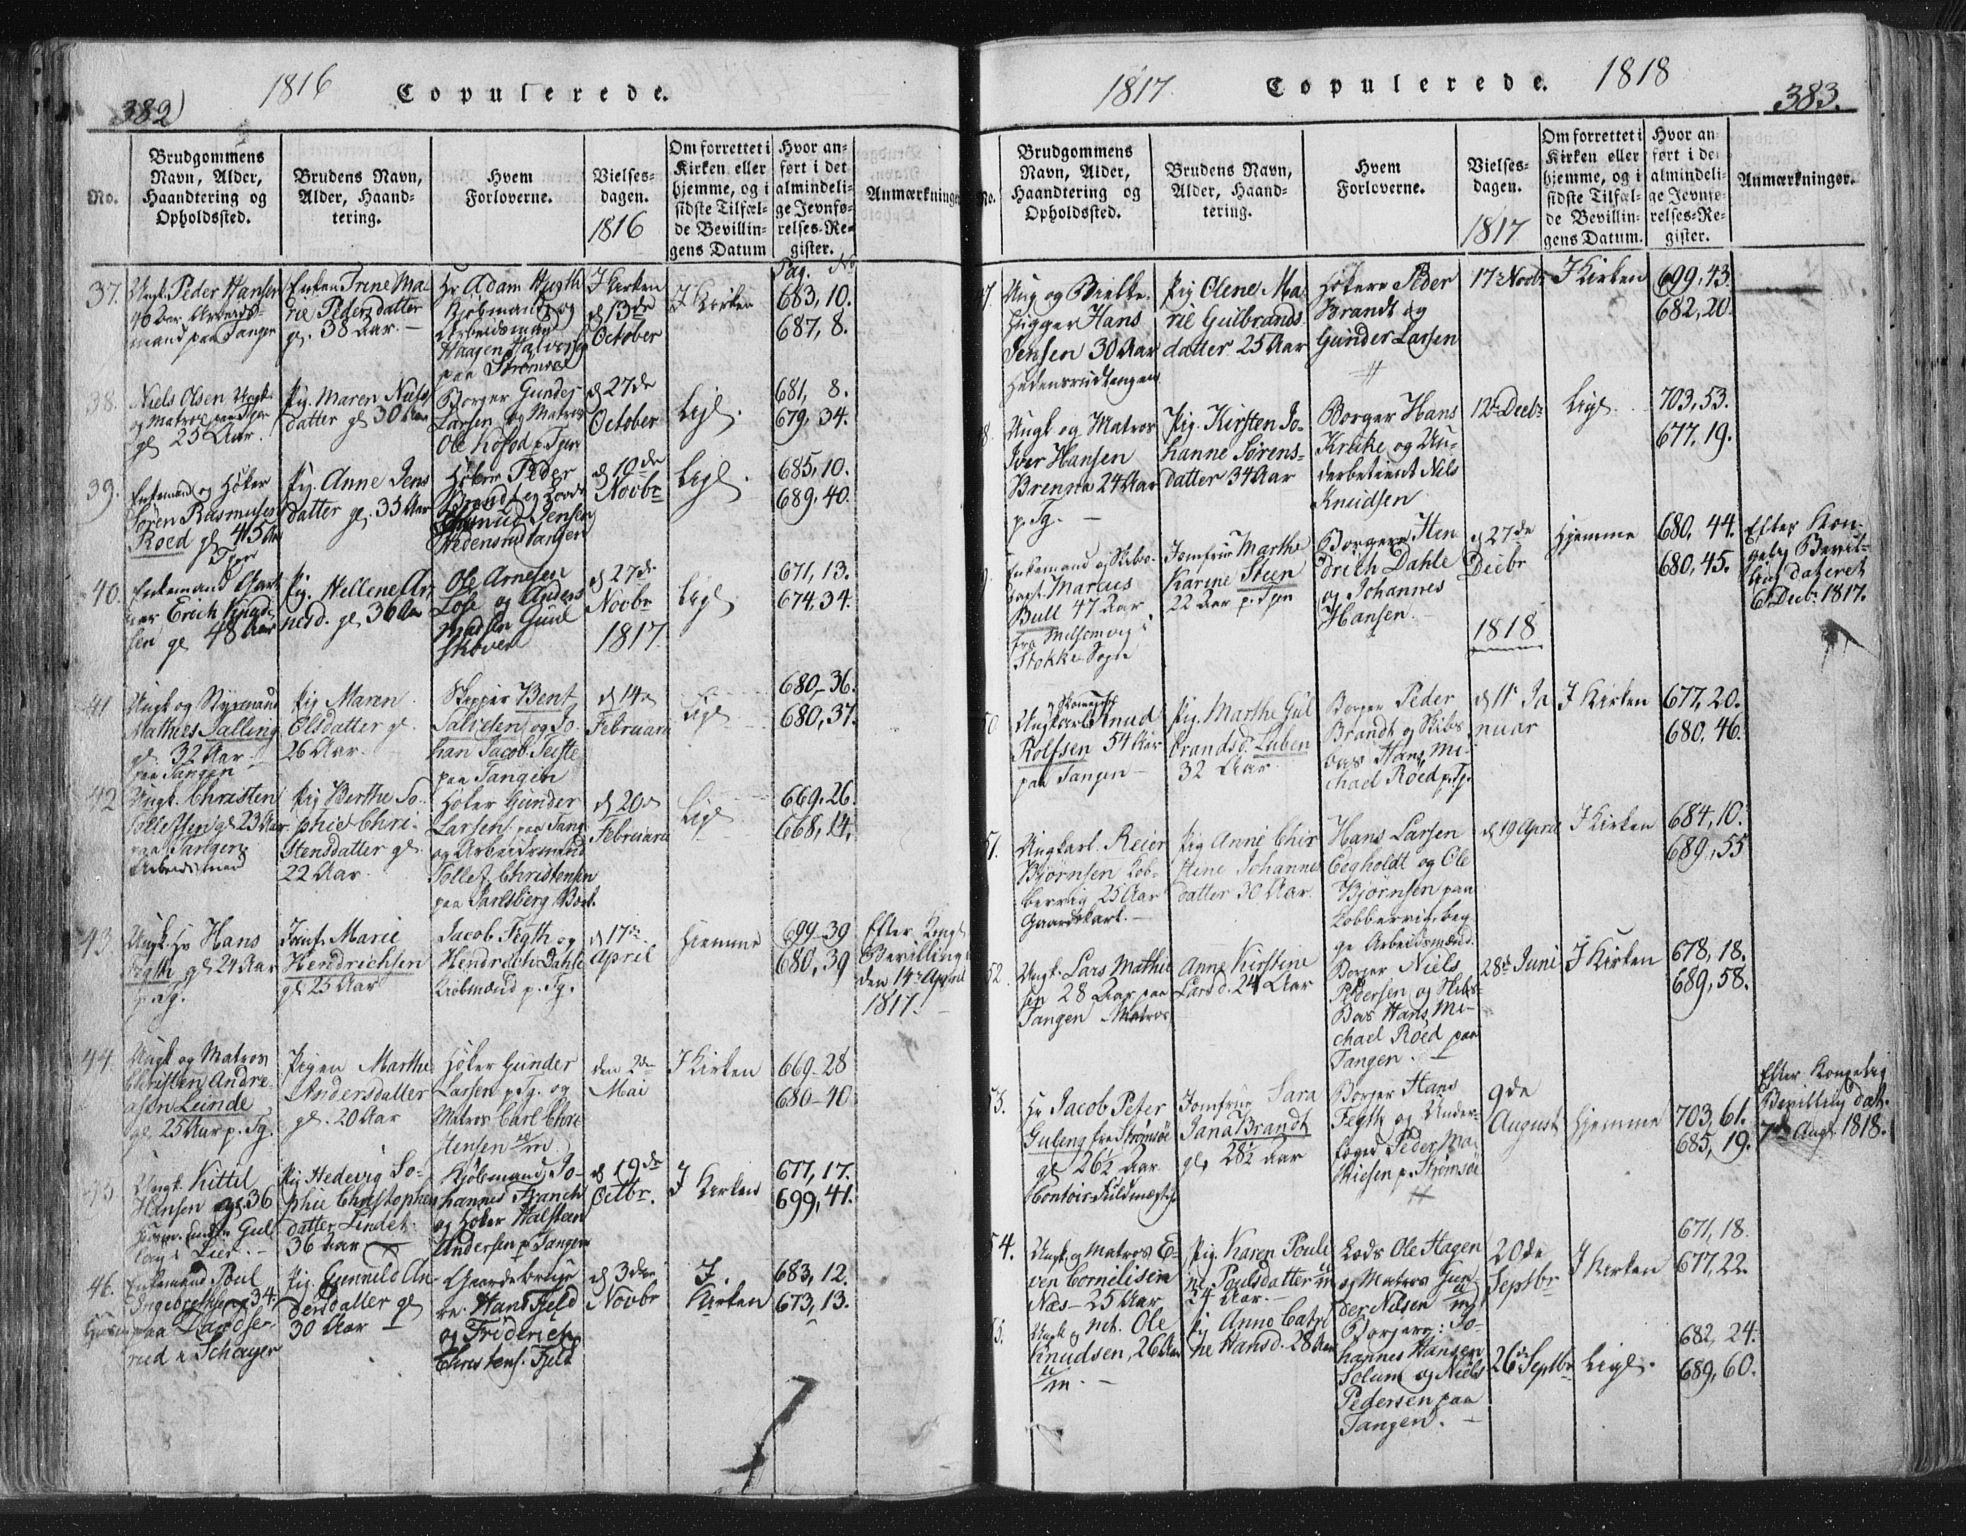 382)
1816
Copulerede.
No.
Brudgommens
Navn, Alder,
Haandtering og
Opholdssted.
Brudens Navn,
Alder, Haand-
tering.
Hvem
Forloverne.
Vielses-
dagen.
1816
Om forrettet i
Kirken eller
hjemme, og i
sidste Tilfæl-
de Bevillin-
gens Datum
Hvor an-
ført i det
almindeli-
ge Jevnfø-
relses-Re-
gister.
Pag. No
Anmærkninger
37.
Ungk. Peder Hansen
40 Aar Arbeids-
mand paa Tangen
Enken Trine Ma
rie Pedersdatter
gl. 38 Aar.
Hr Adam Hugth
Kjøbmand og
Arbeidsmand
Haagen Halvors
paa Strømsøe
I Kirken
d 13de
October
I Kirken
683, 10.
687, 8.
38.
Niels Olsen Ungk.
og Matros paa Tgen
gl 25 Aar.
Pig. Maren Niels
datter gl 30 Aar
Borger Gunder
Larsen og Matros
Ole p. Tgen
d 27de
October
Ligl.
681, 8.
679, 34.
39.
Enkemand og Høker
Søren Rasmusen
Roed gl 45 Aar
Tgen
Pig. Anne Jens
datter gl. 35 Aar
Høker Peder
Brandt og
Jensen
Hedensrudtangen
d 10de
Novbr
Ligl.
685, 10.
689, 40.
40.
Enkemand
Erich Knud-
sen gl 48 Aar
Pig. Hellene Ar
nesd. gl 36 Aar
Ole Arnesen
Lose og Anders
Madsen Guul
skoven
d 27de
Novbr
1817.
Ligl.
671, 13.
674, 34.
41
Ungk og Styrmand
Mathies Salling
gl. 32 Aar
paa Tangen
Pig Maren
Elsdatter gl.
26 Aar.
Skipper Bent
Salvesen og Jo
han Jacob
paa Tangen
d 14de
Februari
Ligl
680-36.
680, 37.
42
Ungk. Christen
Tollefsen gl 23 Aar
paa Tangen
Arbeidsmand
Pig Berthe So
phie Chri-
stensdatter gl.
22 Aar.
Høker Gunder
Larsen paa Tang.
og Arbeidsmand
Tollef Christensen
paa Jarlsberg Værk.
d 20de
Februarii
Ligl
669, 26.
668, 14.
43.
Ungk. Hr Hans
Fegth gl 24 Aar
p. Tg.
Jomf. Marie
Hendrichsen
gl 25 Aar
Jacob Fegth og
Hendrich Dahle
Kiøbmænd p. Tg.
d 17de
April
Hiemme
699-39
680, 39
Efter Kongl
Bevilling
den 14de April
1817.
44.
Ungk og Matros
Christen Andre-
asen Lunde
gl. 25 Aar p. Tg.
Pigen Marthe
Andersdatter
gl. 20 Aar
Høker Gunder
Larsen p Tg. og
Matros Carl Chri
stensen
den 2de
Mai
I Kirken
669-28
680-40.
45.
Ungk. Kittil
Hansen gl 36
Lier.
Pig Hedevig So-
phie Christophers
datter Lindet
36 Aar
Kjøbmand Jo-
hannes Franch
og Høker Halsten
Andersen p Tangen
d 19de
Octbr.
I Kirken
677, 17.
699, 41.
46.
Enkemand Poul
Ingebretsen 34
Pig. Gunnild An
dersdatter gl
30 Aar
Gaardebruge
re Hans Fjeld
og Friderich
Christens. Fjeld
d 3de
Novbr
I
Kirken
683, 12.
673, 13.
1817
Copulerede.
1818
383.
No.
Brudgommens
Navn, Alder,
Haandtering og
Opholdssted.
Brudens Navn,
Alder, Haand-
tering.
Hvem
Forloverne.
Vielses-
dagen.
1817
Om forrettet i
Kirken eller
hjemme, og i
sidste Tilfæl-
de Bevillin-
gens Datum.
Hvor an-
ført i det
almindeli-
ge Jevnfø-
relses-Re-
gister.
Anmærkninger.
7.
Ung og Bielke-
Higger Hans
Jensen 30 Aar
Hedensrudtangen
Pig Olene Ma-
rie Gulbrands
datter 25 Aar
Høkere Peder
Brandt og
Gunder Larsen
17de Novbr
I Kirken
699, 43.
682, 20.
8.
Ungk og Matros
Iver Hansen
Brenna 24 Aar
p. Tg.
Pig. Kirsten Jo-
hanne Sørens-
datter 34 Aar
Borger Hans
Krüke og Un-
derbetient Niels
Knudsen
12te Decbr
Ligl.
703, 53.
677, 19.
9.
Enkemand og Skibs-
capt. Marcus
Bull 47 Aar
fra Melsomvig i
Stokke Sogn
Jomfrue Marthe
Karine Steen
22 Aar p. Tgen
Borgere Hen
drich Dahle
og Johannes
Hansen.
d 27de
Decbr
1818
Hjemme
680, 44.
680, 45.
Efter Kon-
gelig Bevil-
ling dateret
6 Decbr. 1817.
50.
Ungkarl Knud
Rolfsen 54 Aar
paa Tangen
Pig. Marthe Gul
brandsd. Luben
32 Aar.
Borger Peder
Brandt og Skibs
bas Hans Mi-
chael Roed p. Tg.
d 11te Ja
nuar
I Kirken
677, 20.
680, 46.
51.
Ungkarl. Reier
Bjørnsen Kob-
bervig 25 Aar
Gaardskarl.
Pig Anne Chir
stine Johannes
datter 30 Aar.
Hans Larsen
Eegholdt og Ole
Bjørnsen paa
Kobbervig beg
ge Arbeidsmænd.
d 19 April
I Kirken
684, 10.
689, 55
52.
Ungk. Lars Mathie
sen 28 Aar paa
Tangen Matros
Anne Kirstine
Larsd. 24 Aar
Borger Niels
Pedersen og Skibs
Bas Hans Mi-
chael Roed paa
Tangen.
28de Juni
I Kirken
678, 18.
689, 58.
53.
Hr Jacob Peter
Guling fra Strømsøe
gl 26½ Aar
Contoir Fuldmægtig
Jomfrue Sara
Jana Brandt
gl, 28½ Aar
Borger Hans
Fegth og Under-
foged Peder Ma
thiesen p. Strømsøe
9de
August
Hjemme
703, 61.
685, 19.
Efter Kongelig
Bevilling dat.
7de Augt. 1818.
54.
Ungk. og Matros E-
ven Cornelisen
Næs - 25 Aar
Pig. Karen Pouli
ne Poulsdatter
24 Aar.
Lods Ole Hagen
og Matros Gun
der Nilsen
20de
Septbr
I Kirken
671, 18.
677, 22.
55.
Ungk og Ole
Knudsen, 26 Aar
Pig Anne Catri
ne Hansd. 28 Aar
Borgere: Jo-
hannes Hansen
Solum og Niels
Pedersen paa
Tangen.
26de Septbr
Ligl.
682, 24.
689, 60.